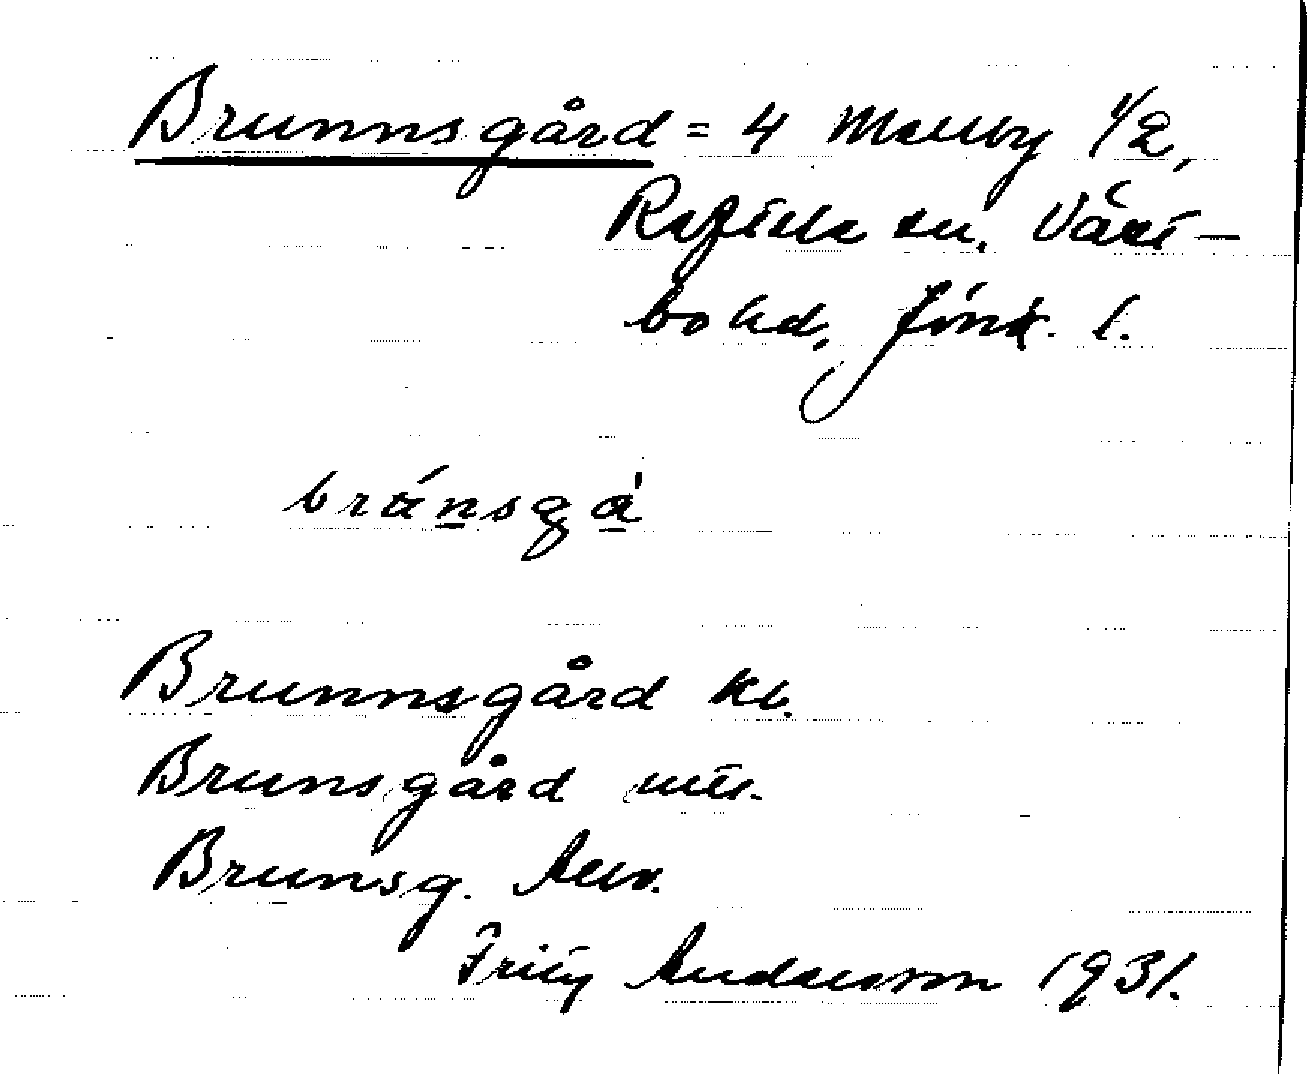 Brunnsgård = 4 Mellby 1/2,
Reftele sn. Väst-
bo hd, Jönk. l.
bránsgà
Brunnsgård kb.
Brunsgård mtl.
Brunsg. Allv.
Fritz Andersson 1931.